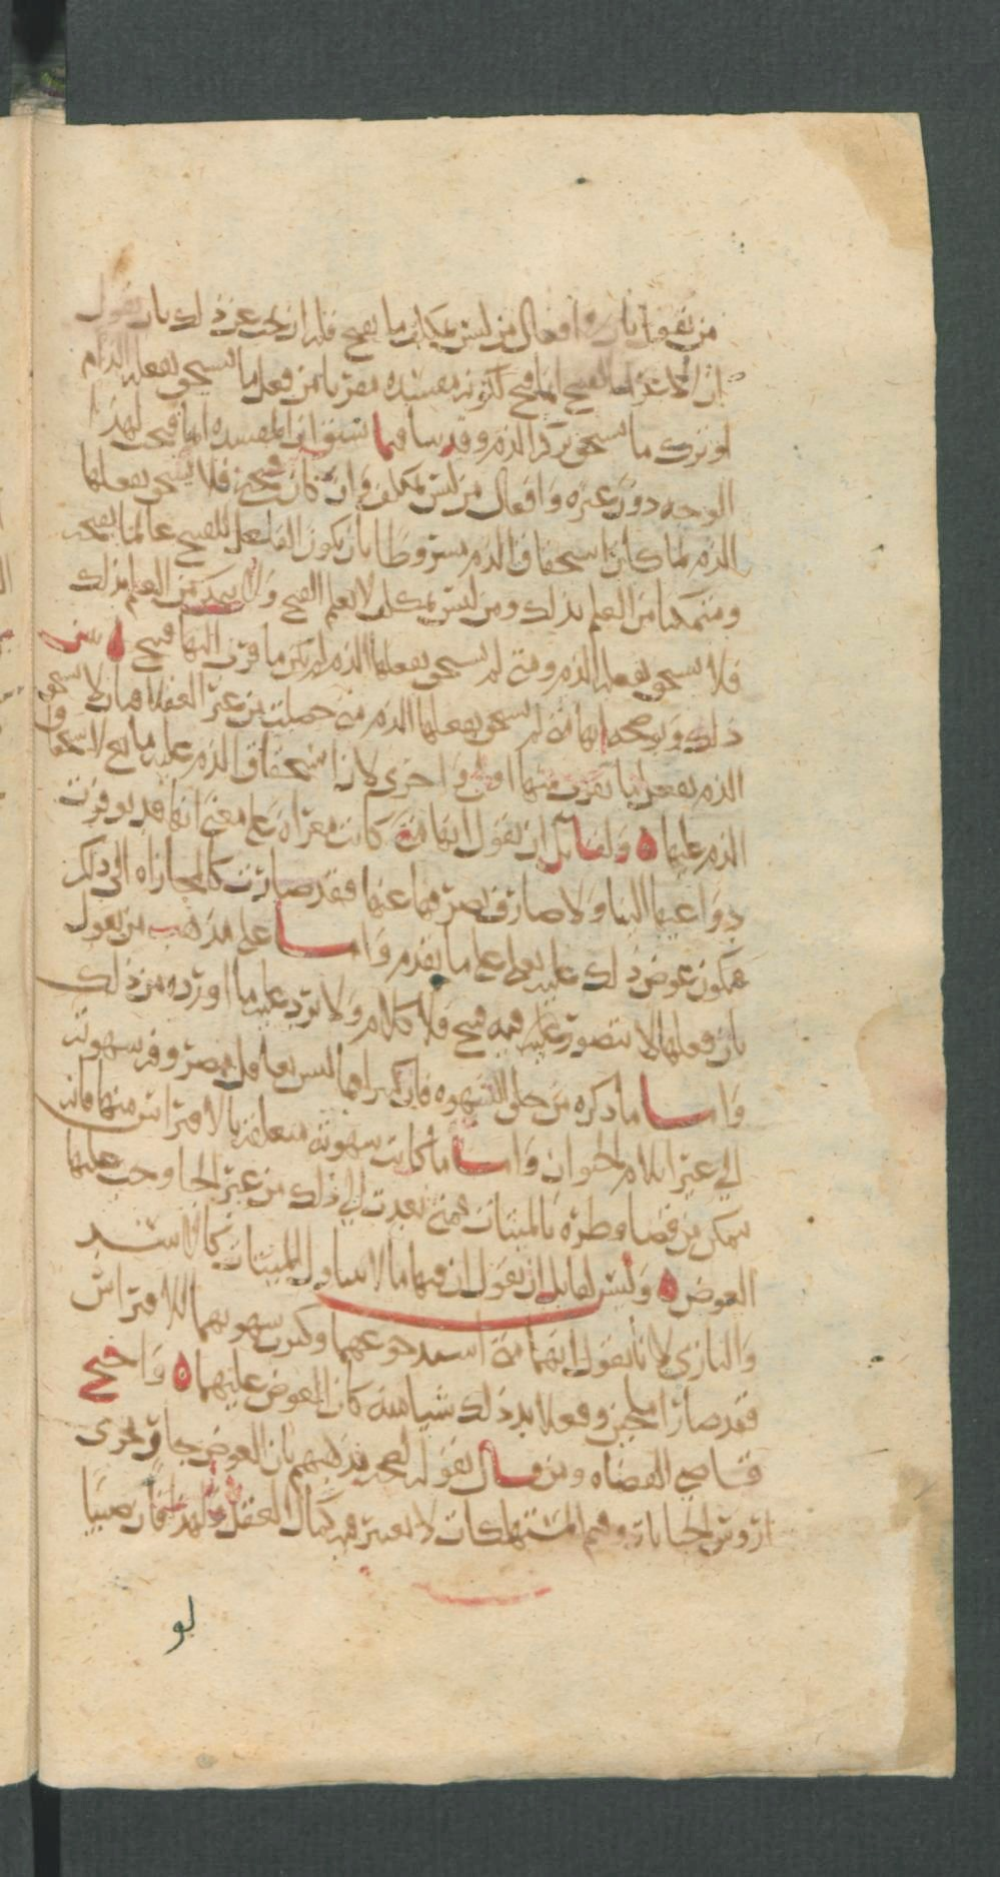 من يقول بان افعال من ليس بمكلف ما يقبح فله ان يجيب عن ذلك بان يقول
ان القبيح انما قبح لكونه مفسده من فعل ما يستحق بفعله الذم
او ترك ما يستحق بتركه الذم وقد بينا فيما سبق ان المفسده انما قبحت لهذا
الوجه دون غيره وافعال من ليس بمكلف وان كان قبيح فلا يستحق بفعلها
الذم لما كان استحقاق الذم مشروطا بان يكون الفاعل للقبيح عالما بقبحه
ومتمكنا من العلم بذلك ومن ليس بمكلف لا يعلم القبح ولا يتمكن من العلم بذلك
فلا يستحق بفعله الذم ومتى لم يستحق بفعلها الذم لم يكن ما قرب اليها قبيح ه يبين
ذلك ويوضحه انها متى لم يستحق بفعلها الذم متى حصلت من غير العقلا فبان لا يستحق
الذم بفعل ما يقرب منها اولى واحرى لان استحقاق الذم عليه تابع لاستحقاق
الذم عليها ه ولقايل ان يقول انها متى كانت مغراه على معنى انها قد توفرت
دواعيها اليها ولا صارف يصرفها عنها فقد صارت كالمجازاه الى ذلك
فيكون عوض ذلك عليه تعالى على ما تقدم واما على مذهب من يقول
بان فعلها لا يتصور فيه قبح فلا كلام ولا يرد عليه ما اورده من ذلك
واما ما ذكره من خلق الشهوه فان كثيرا منها ليس بعاقل يصرف شهوته
الى غير ايلام الحيوان واما ما كانت شهوته متعلقه بالافتراس منها فانه
يتمكن من قضا وطره بالميتات فمتى تعدت الى ذلك من غير الجا وجب عليها
العوض ه وليس لقايل ان يقول ان فيها ما لا يتناول الميتات كالاسد
والبازي لانا نقول انها متى اشتد جوعهما وكثرت شهوتهما للافتراس
فقد صارا ملجين وفعلا بدذلك شيا منه كان العوض عليهما ه واحتج
قاضي القضاه ومن قال بقوله لصحه مذهبهم بان العوض جار مجرى
اروش الجنايات وقيم المستهلكات لا يعتبر فيه كمال العقل ولهذا فان صبيا
لو